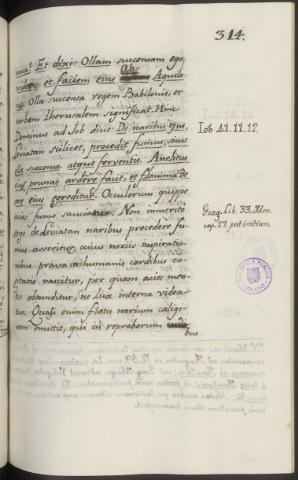 314.
Et dixi: Ollam succensam ego
video, et faciem eius ab Aquilo-
nis. Olla succensa regem Babilonis, et
urbem Iherusalem significat. Hinc
Dominus ad Iob dicit De naribus ejus,
Leviatan scilicet, procedit fumus, sicut
olla succensa atque ferventis. Anelitus
ejus prunas ardere facit, et flamma de
ore eius egreditur. Oculorum quippe
acies fumo sauciatur. Non inmerito
ergo de Leviatan naribus procedere fu-
mus asseritur, cuius noxiis inspiratio-
nibus prava in humanis cordibus co-
gitatio nascitur, per quam acies men-
tis obtunditur, ne Lux interna videa-
tur. Quasi enim flatu narium caligi-
nem emittit, qui in reproborum cordi
bus
Iob 41.11.12
Greg. Lib. 33. Mor.
cap. 27. post initium
BIBLIOTECA PUBLICA
TOLEDO